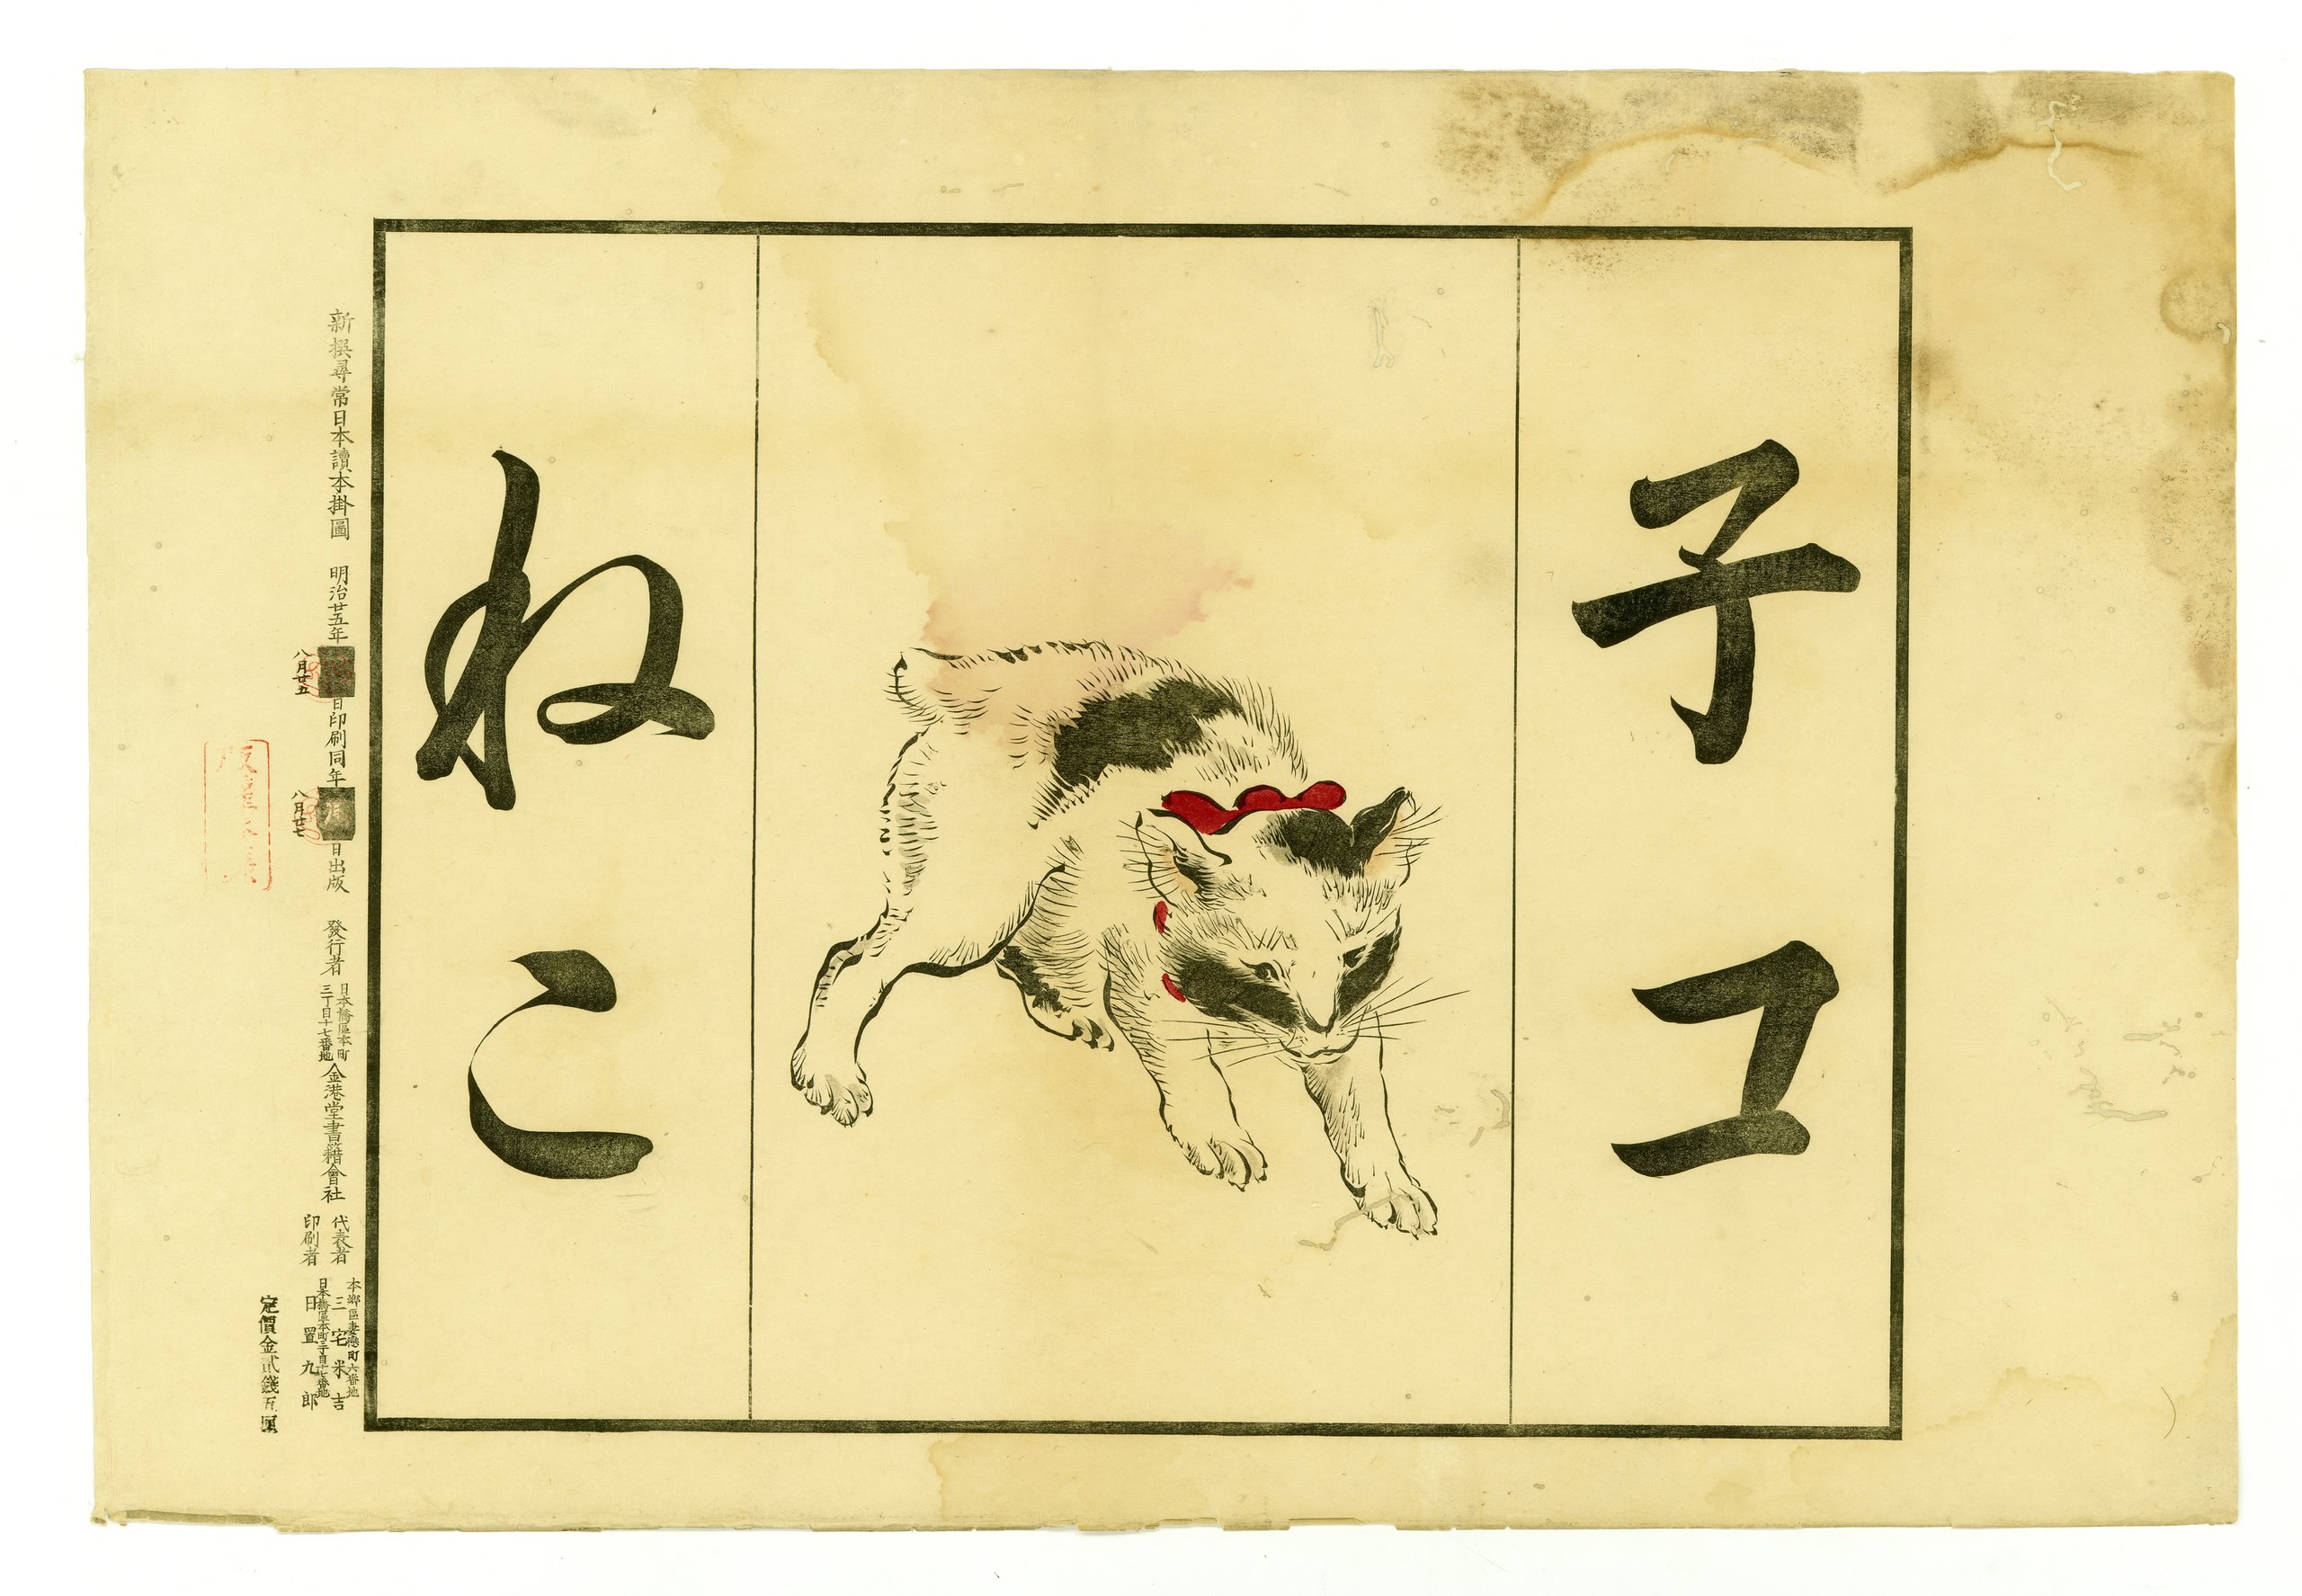 子コ
ねこ
新撰尋常日本讀本掛圖 明治廿五年
八月廿五
日印刷同年
八月廿七
日出版 發行者
日本橋區本町
三丁目十七番地
金港堂書籍會社
代表者
本郷區妻戀町六番地
三宅米吉
印刷者
日本橋區本町三丁目十七番地
日置九郎
定價金貳錢五厘